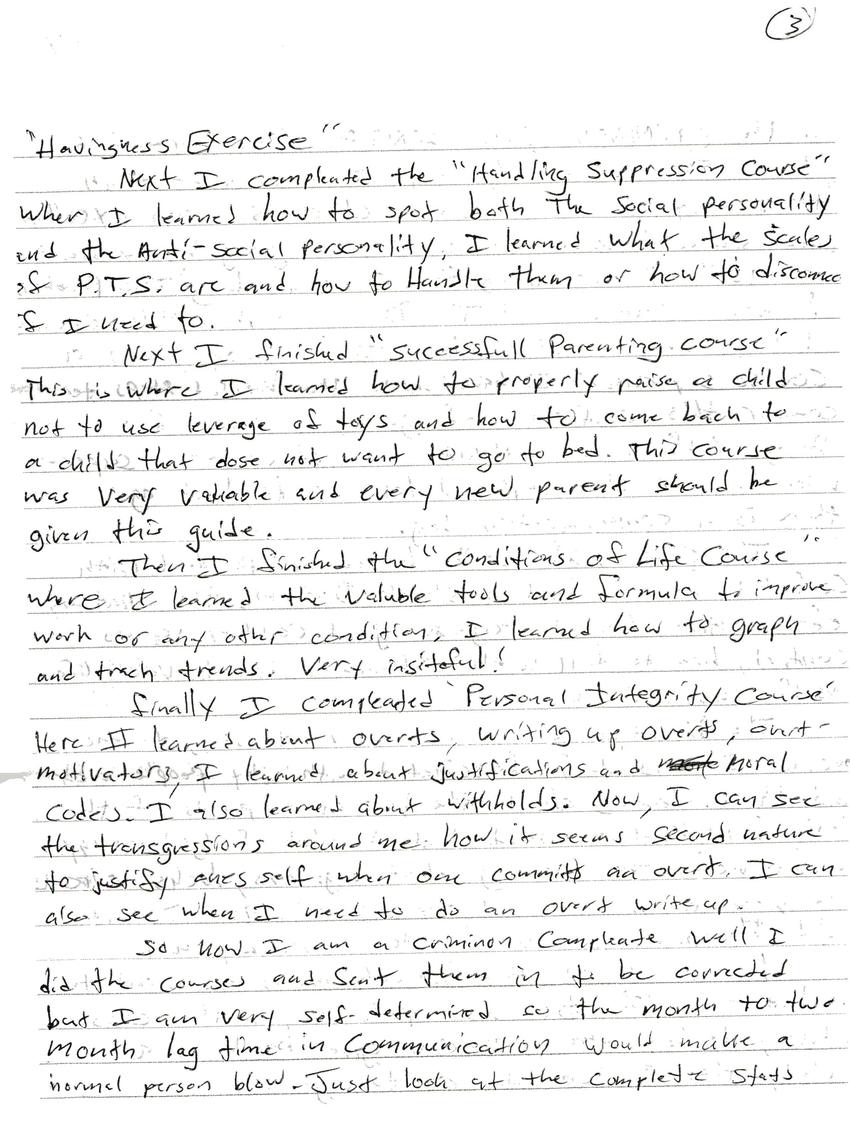 3
"Havingness Exercise"
Next I compleated the "Handling Suppression Course"
Wher I learned how to spot both The Social personality
and the Anti-social personality, I learned what the scales
of P.T.S. are and how to Handle them or how to disconnec
if I need to.
Next I finished "Successfull Parenting course"
This is where I learned how to properly raise a child
not to use leverage of toys and how to come bach to
a child that dose not want to go to bed. This course
was very valiable and every new parent should be
given this guide.
Then I finished the "Conditions of Life Course"
where I learned the valuble tools and formula to improve
work or any other condition, I learned how to graph
and trach trends. Very insiteful!
finally I compleated "Personal Integrity Course"
Here I learned about overts, writing up overts, overt-
motivators, I learned about justifications and Moral
Codes. I also learned about withholds. Now, I can see
the transgressions around me how it seems second nature
to justify ones self when one committs an overt. I can
also see when I need to do an overt write up.
So now I am a Criminon Compleate well I
did the courses and Sent them in to be corrected
but I am very self-determined so the month to two
month lag time in Communication would make a
normal person blow. Just look at the complete stats